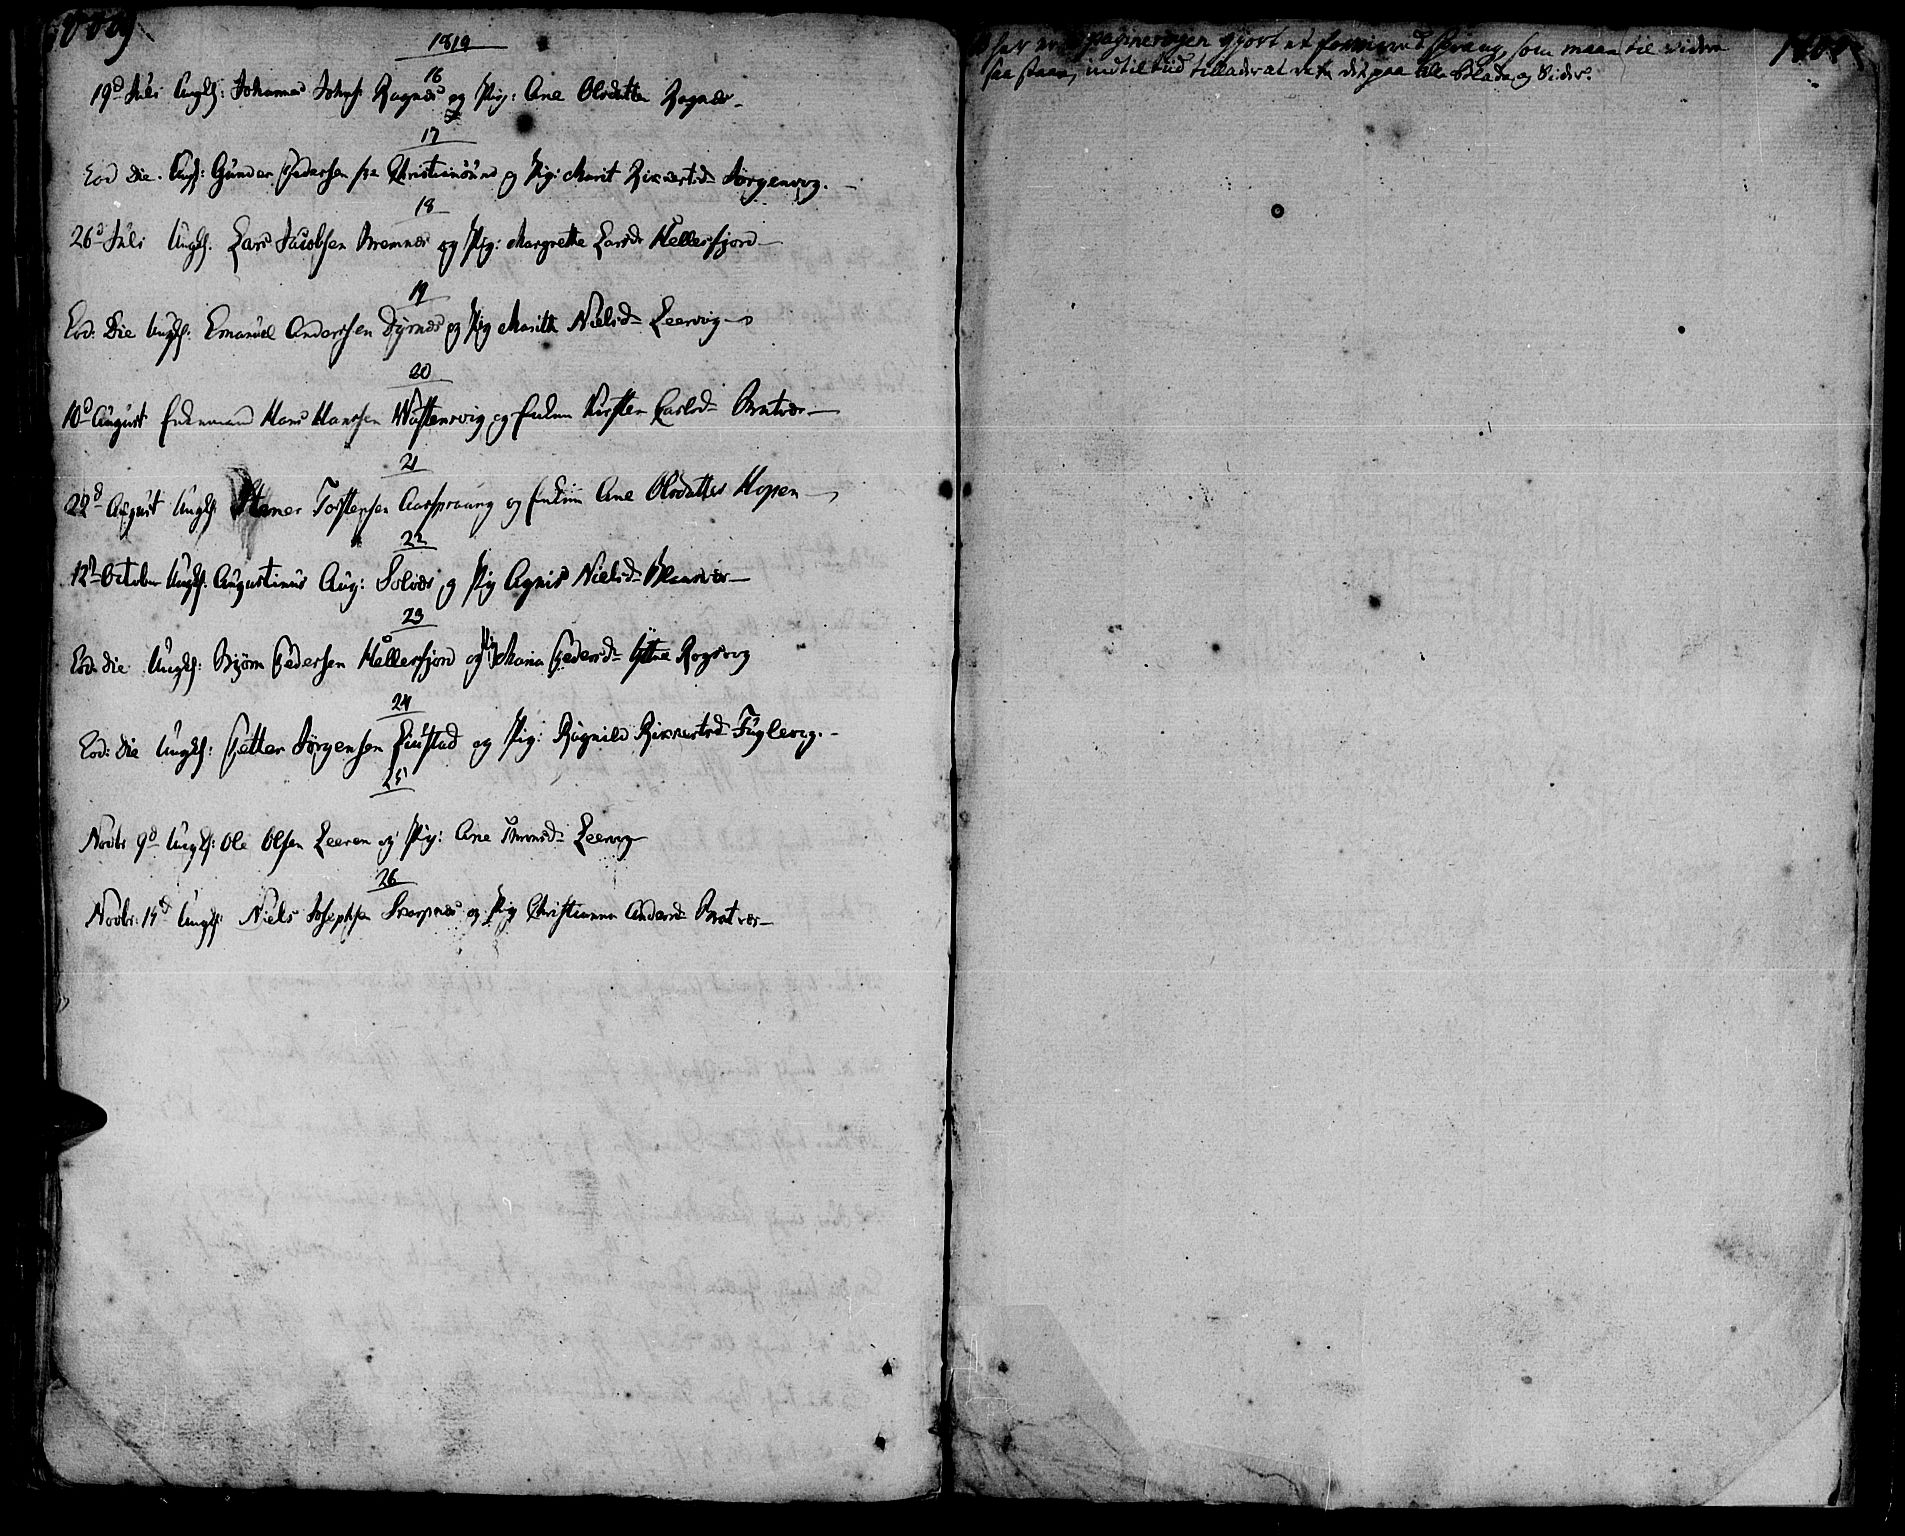 1819
16
19d Juli Ungk: Johannes Johns: Ragnæs og Pig: Ane Olsdatter Ragnæs
17
Eod die. Ungk: Gunder Pedersen fra Christiansund og Pig: Marit Jørgenvog.
18
26d Juli Ungk. Lars Jacobsen Bremnes og Pig: Margrethe Larsd Hellesfjord
19
Eod: Die Ungk. Emanuel Anderssen Dyrnes og Pig Marith Nielsd Leervig
20
10d August Enkemand Hans Hanssen og Enken Kirsten Carlsd Bratvær
21
22d August Ungk. Torstensen og Enken Ane Olsdatter Hopen
22
12d October Ungk. Augustinus Aug: Solvær og Pig Agnis Nielsd
23
Eod: die Ungk: Bjørn Pedersen Hellesfjord og Pig Maria Pedersd Rogsvog
24
Eod: die Ungk: Petter Jørgensen og Pig: Ragnild Fuglevog.
25
Novbr 9d Ungk: Ole Olsen Leeren og Pig: Ane Leervog
26
Novbr: 15d Ungk: Niels Josephsen Skarpnes og Pig Christianna Andersd Bratvær
her er pagineringen gjort et Spring, som maae til videre
saa staae, indtil tiid tillader at rette det paa alle Blade og Sider.